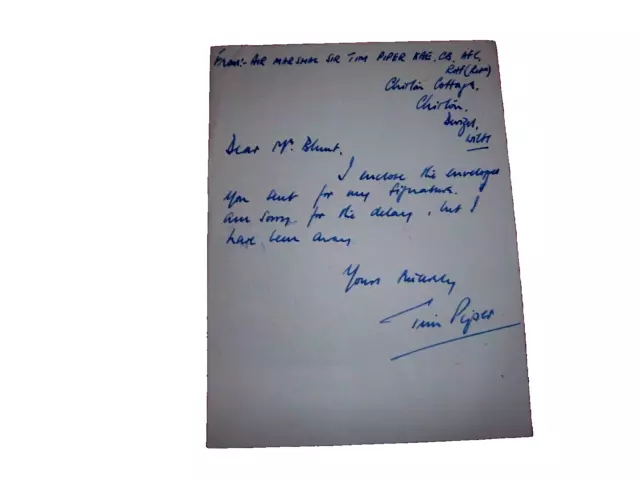 From:- AIR MARSHAL SIR TIM PIPER KBE, CB, AFC,
RAF (Retd)
Chirton Cottage,
Chirton,
Devizes,
WILTS
Dear Mr. Blunt,
I enclose the envelopes
you sent for my signature. I
am sorry for the delay, but I
have been away
Yours sincerely
Tim Piper